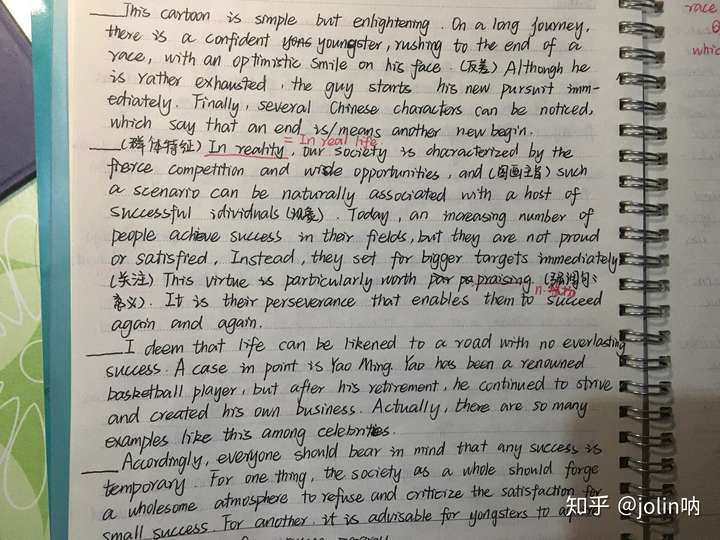 This cartoon is simple but enlightening. On a long journey,
there is a confident yons youngster, rushing to the end of a
race, with an optimistic smile on his face. (反差) Although he
is rather exhausted, the guy starts his new pursuit imm-
ediately. Finally, several Chinese characters can be noticed,
which say that an end is/means another new begin.
= In real life
(群体特征) In reality, our society is characterized by the
fierce competition and wide opportunities, and (图画主旨) such
a scenario can be naturally associated with a host of
successful idividuals (现象). Today, an increasing number of
people achieve success in their fields, but they are not proud
or satisfied. Instead, they set for bigger targets immediately
(关注) This virtue is particularly worth par pa praising. (强调句:
n.
意义). It is their perseverance that enables them to succeed
again and again.
I deem that life can be likened to a road with no everlasting
success. A case in point is Yao Ming. Yao has been a renowned
basketball player, but after his retirement, he continued to strive
and created his own business. Actually, there are so many
examples like this among celebrities.
Acordingly, everyone should bear in mind that any success is
temporary. For one thing, the society as a whole should forge
a wholesome atmosphere to refuse and criticize the satisfaction for
small success. For another, it is advisable for yongsters to
race
whic
知乎 @jolin呐